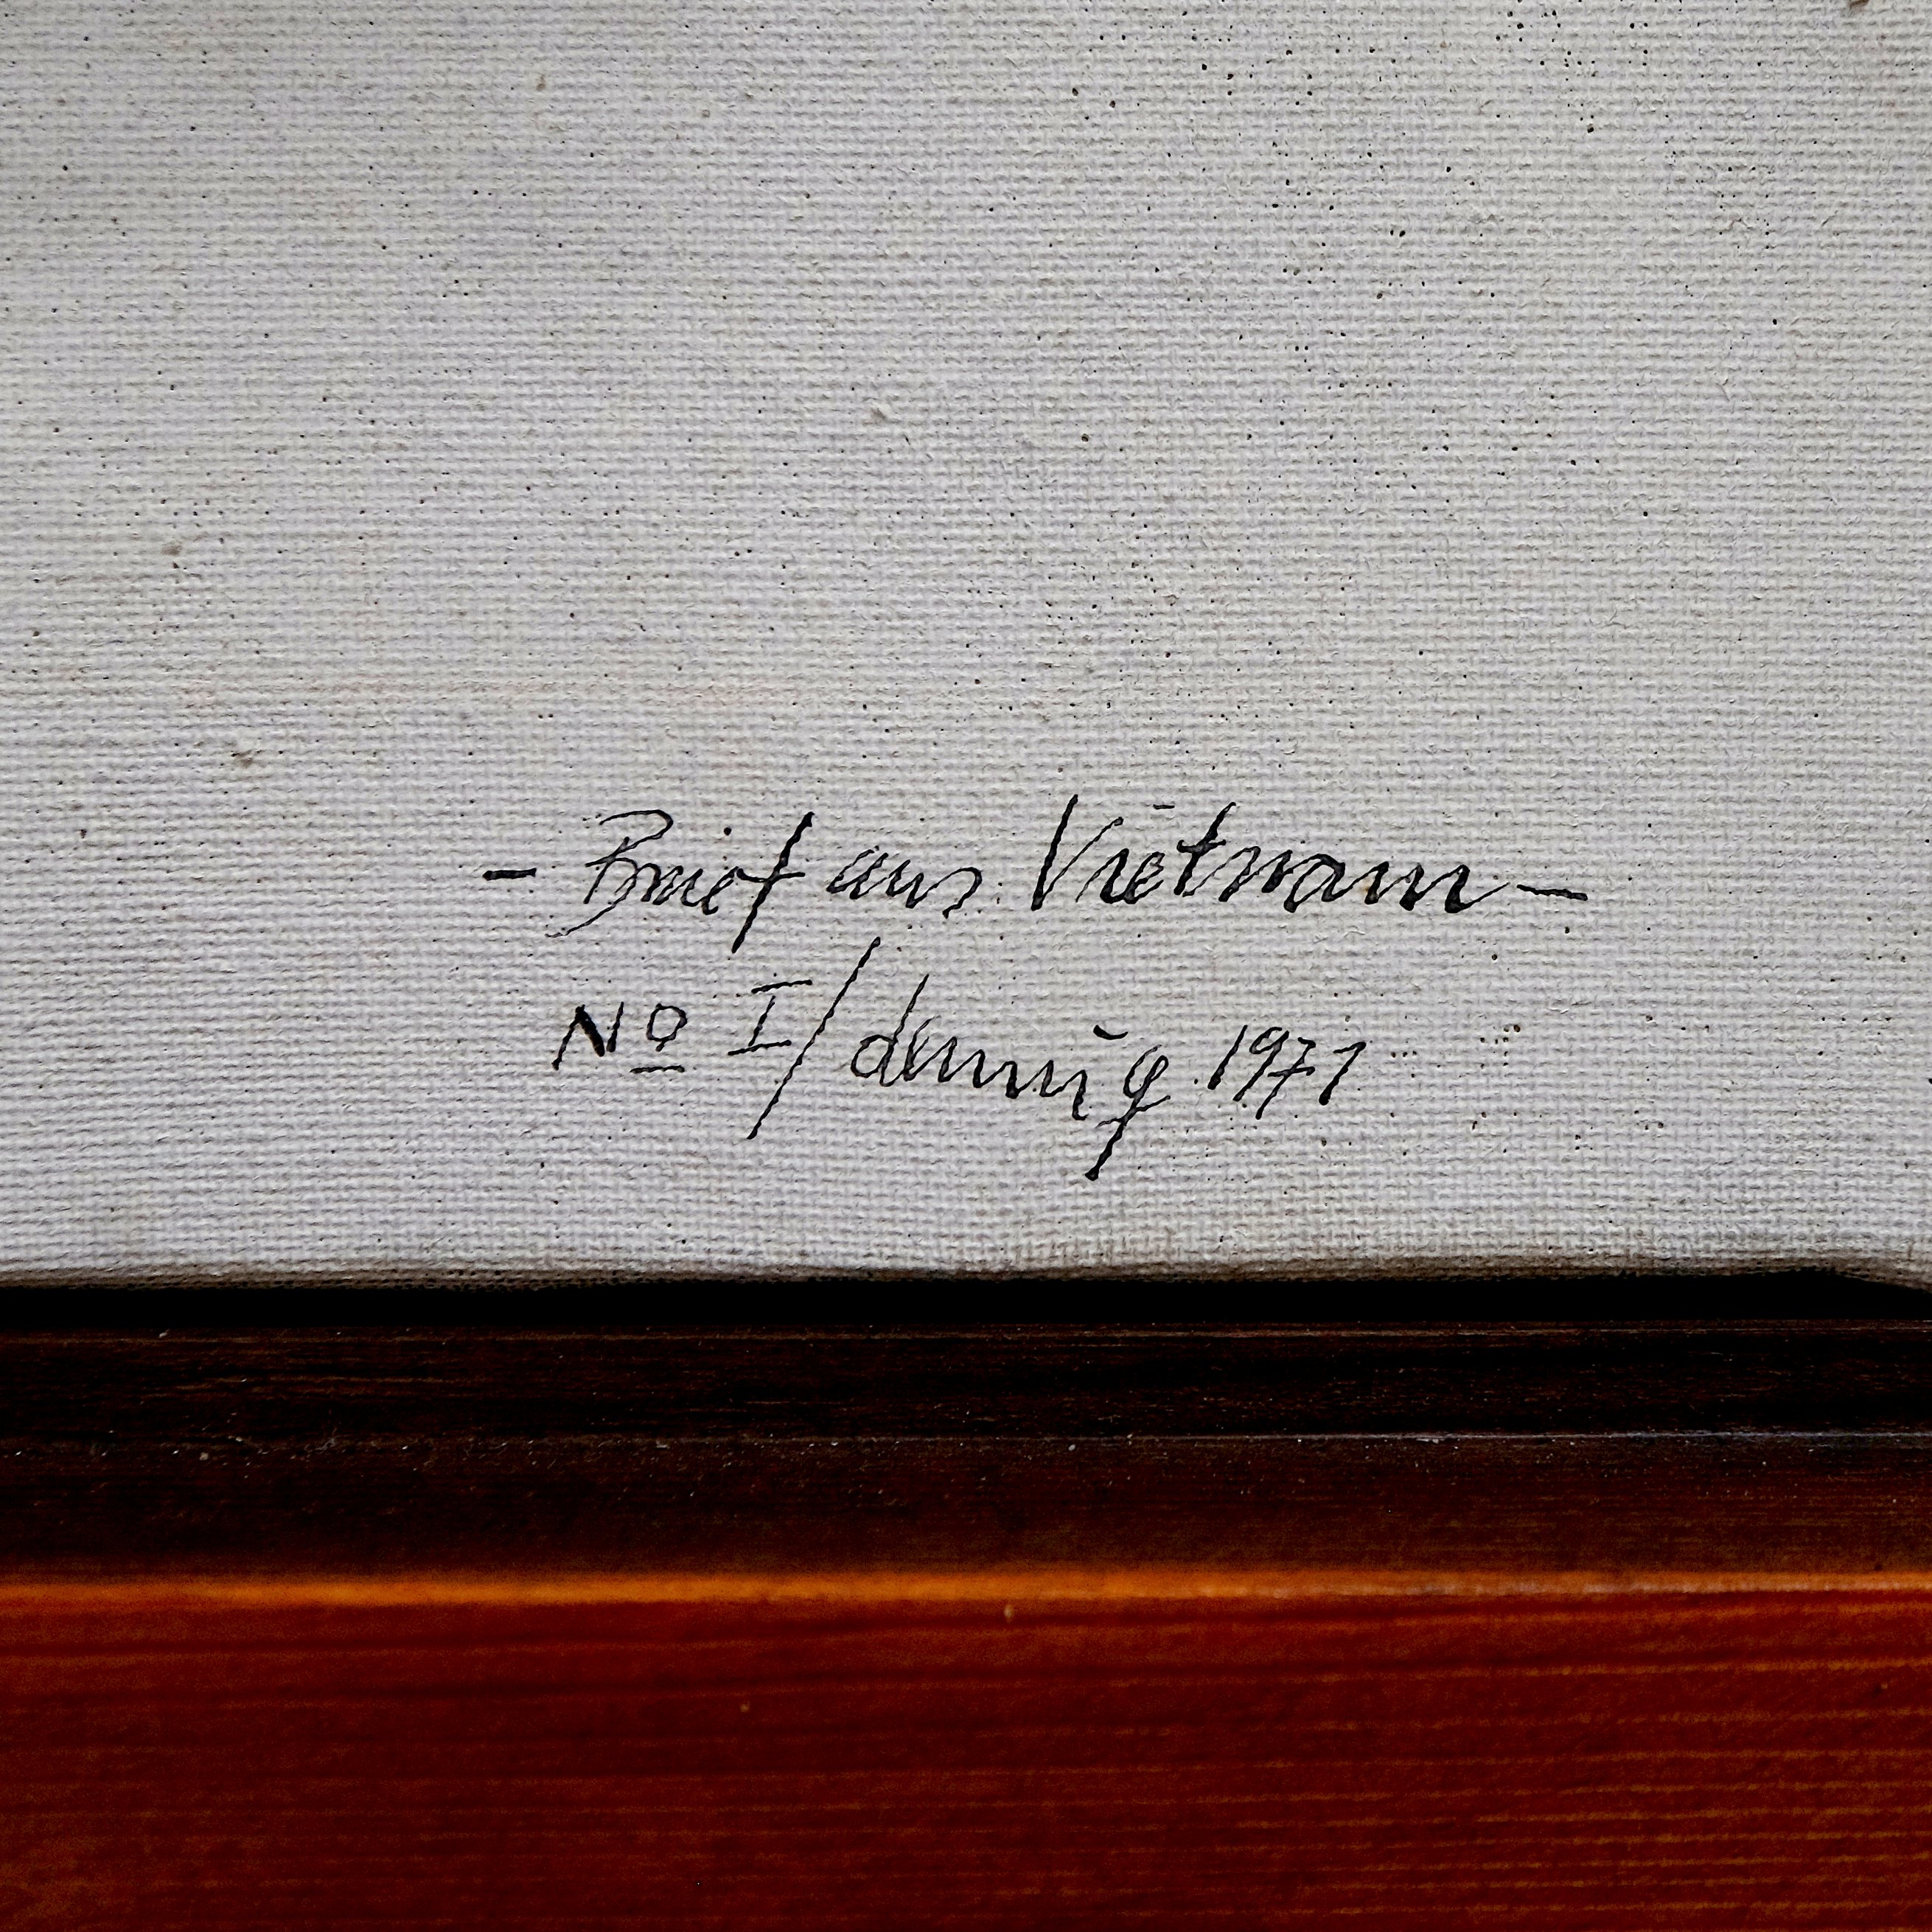 - Brief aus Vietnam -
Nº I/ dennig 1971